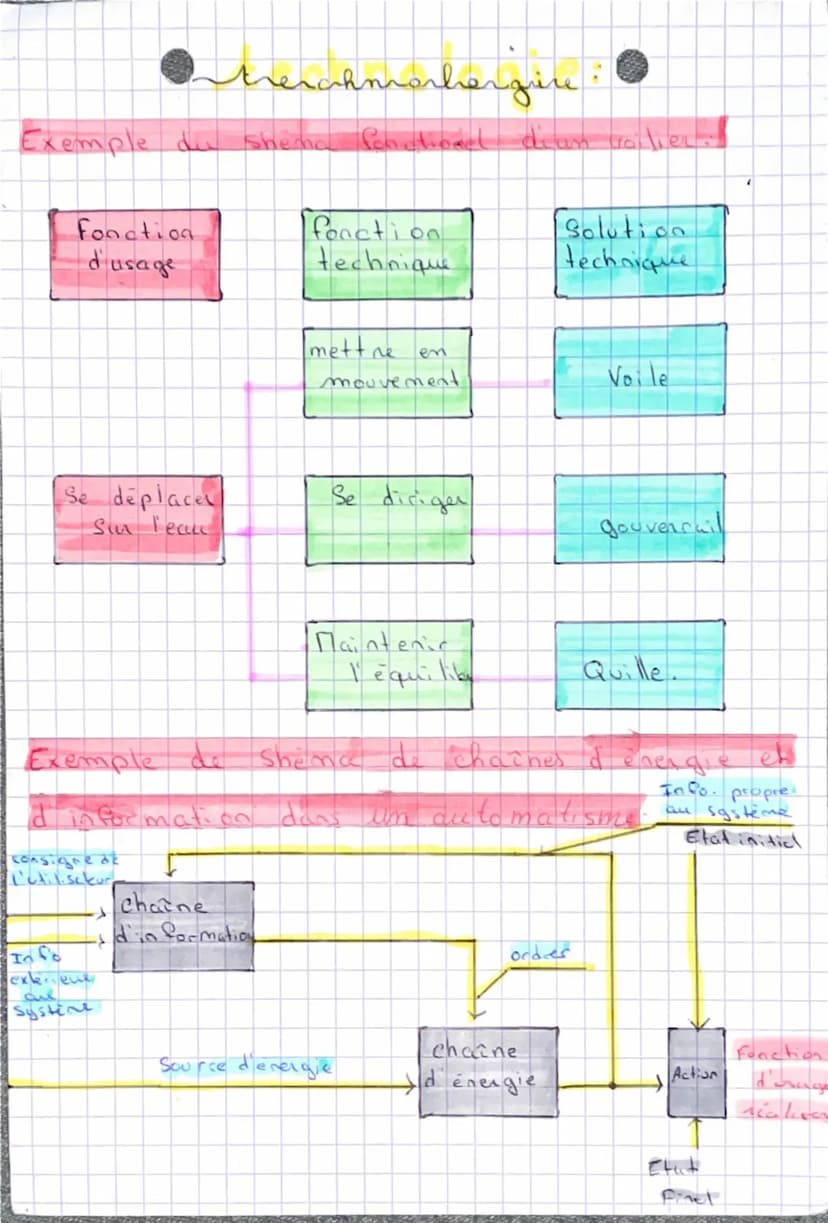 technologie :
Exemple du shéma fonctionel d'un voilier :
Fonction
d'usage
fonction
technique
Solution
technique
mettre en
mouvement
Voile
Se déplacer
sur l'eau
Se diriger
gouvernail
Maintenir
l'équilib
Quille.
Exemple de shéma de chaînes d'énergie et
d'information dans un automatisme.
Info. propre
au système
Etat initial
consigne de
l'utilisateur
chaîne
d'information
Info
extérieure
au
système
ordres
Source d'énergie
chaîne
d'énergie
Action
Fonction
d'usage
réalisée
Etat
Final